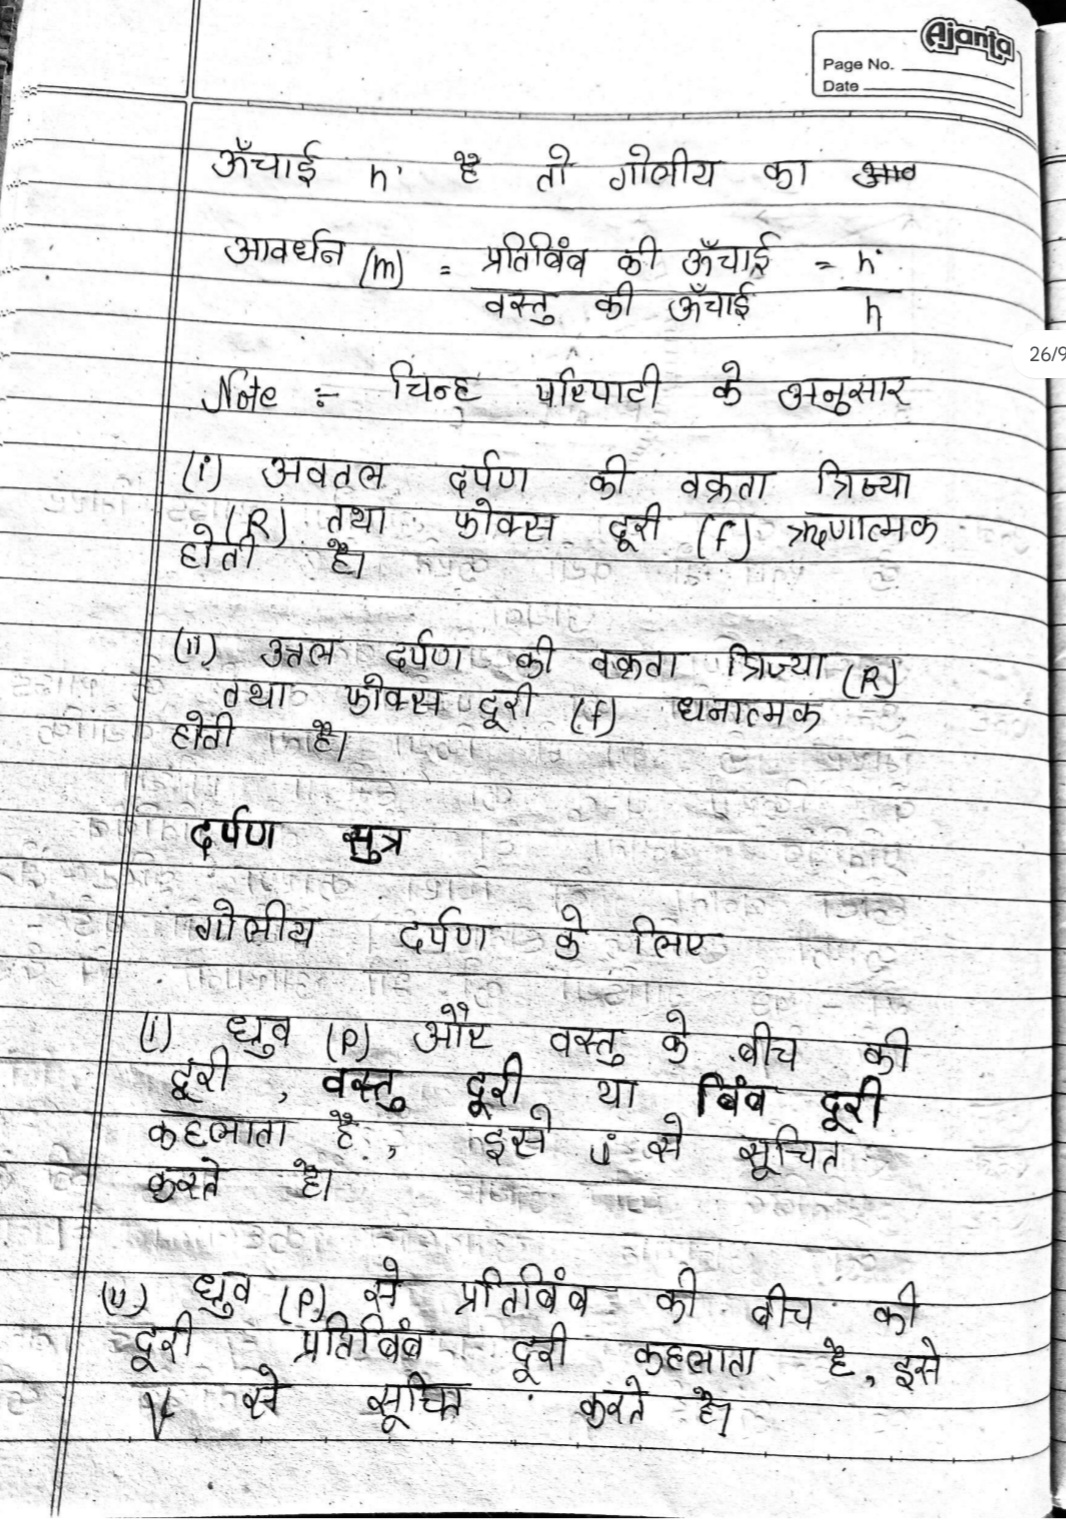 Ajanta
Page No.
Date
ऊँचाई h' है तो गोलीय का आव
आवर्धन (m) = प्रतिबिंब की ऊँचाई = h'
वस्तु की ऊँचाई h
26/9
Note :- चिन्ह परिपाटी के अनुसार
(i) अवतल दर्पण की वक्रता त्रिज्या
(R) तथा फोकस दूरी (f) ऋणात्मक
होती है।
(ii) उत्तल दर्पण की वक्रता त्रिज्या (R)
तथा फोकस दूरी (f) धनात्मक
होती है।
दर्पण सुत्र
गोलीय दर्पण के लिए
(i) ध्रुव (p) और वस्तु के बीच की
दूरी , वस्तु दूरी या बिंब दूरी
कहलाता है , इसे u से सूचित
करते है।
(ii) ध्रुव (P) से प्रतिबिंब की बीच की
दूरी प्रतिबिंब दूरी कहलाता है, इसे
V से सूचित करते है।